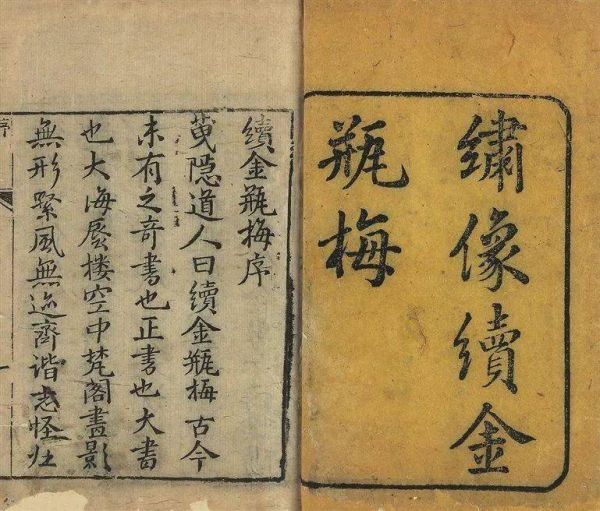 繡像續金
瓶梅
續金瓶梅序
隱道人曰續金瓶梅古今
未有之奇書也正書也大書
也大海蜃樓空中梵閣畫影
無形繫風無迹齊諧志怪壯